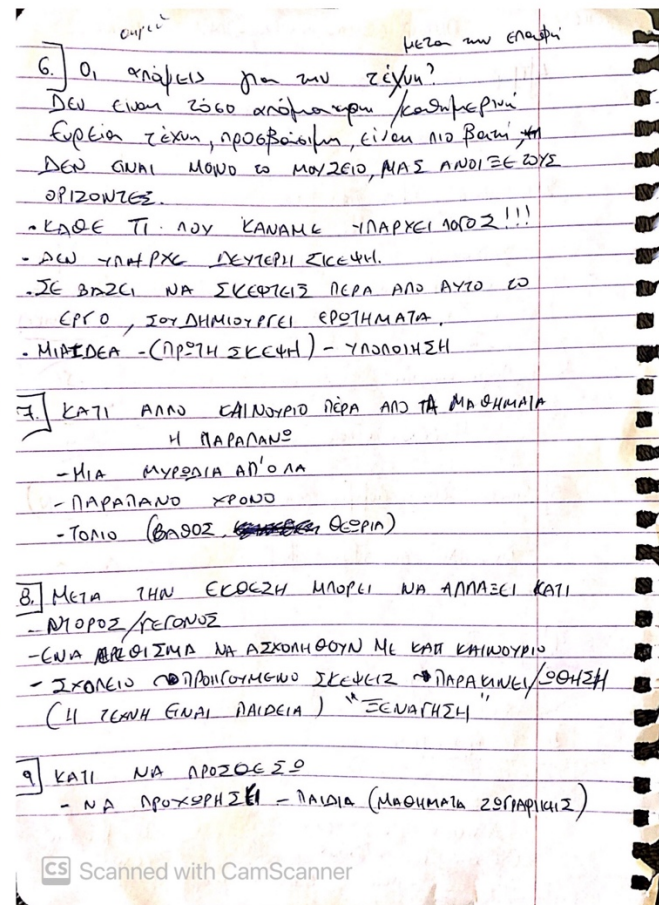 μετα την επαφή
6. Οι απόψεις για την τέχνη?
Δεν ειναι τόσο απόμακρη / καθημερινή
Ευρεία τέχνη, προσβάσιμη, είναι πιο βατή,
ΔΕΝ ΕΙΝΑΙ ΜΟΝΟ ΤΟ ΜΟΥΣΕΙΟ, ΜΑΣ ΑΝΟΙΞΕ ΤΟΥΣ
ΟΡΙΖΟΝΤΕΣ.
• ΚΑΘΕ ΤΙ ΠΟΥ ΚΑΝΑΜΕ ΥΠΑΡΧΕΙ ΛΟΓΟΣ!!!
- ΔΕΝ ΥΠΗΡΧΕ ΔΕΥΤΕΡΗ ΣΚΕΨΗ.
• ΣΕ ΒΑΖΕΙ ΝΑ ΣΚΕΦΤΕΙΣ ΠΕΡΑ ΑΠΟ ΑΥΤΟ ΤΟ
ΕΡΓΟ, ΣΟΥ ΔΗΜΙΟΥΡΓΕΙ ΕΡΩΤΗΜΑΤΑ.
• ΜΙΑ ΙΔΕΑ - (ΠΡΩΤΗ ΣΚΕΨΗ) - ΥΛΟΠΟΙΗΣΗ
7. ΚΑΤΙ ΑΛΛΟ ΚΑΙΝΟΥΡΙΟ ΠΕΡΑ ΑΠΟ ΤΑ ΜΑΘΗΜΑΤΑ
Η ΠΑΡΑΠΑΝΩ
- ΜΙΑ ΜΥΡΩΔΙΑ ΑΠ'ΟΛΑ
- ΠΑΡΑΠΑΝΟ ΧΡΟΝΟ
- ΤΟΠΙΟ (ΒΑΘΟΣ, ΘΕΩΡΙΑ)
8. ΜΕΤΑ ΤΗΝ ΕΚΘΕΣΗ ΜΠΟΡΕΙ ΝΑ ΑΛΛΑΞΕΙ ΚΑΤΙ
- ΝΤΟΡΟΣ/ΓΕΓΟΝΟΣ
- ΕΝΑ ΕΡΕΘΙΣΜΑ ΝΑ ΑΣΧΟΛΗΘΟΥΝ ΜΕ ΚΑΤΙ ΚΑΙΝΟΥΡΙΟ
- ΣΧΟΛΕΙΟ ΠΡΟΗΓΟΥΜΕΝΟ ΣΚΕΨΕΙΣ ΠΑΡΑΚΙΝΕΙ/ΩΘΗΣΗ
(Η ΤΕΧΝΗ ΕΙΝΑΙ ΠΑΙΔΕΙΑ) "ΞΕΝΑΓΗΣΗ"
9. ΚΑΤΙ ΝΑ ΠΡΟΣΘΕΣΩ
- ΝΑ ΠΡΟΧΩΡΗΣΕΙ - ΠΑΙΔΙΑ (ΜΑΘΗΜΑΤΑ ΖΩΓΡΑΦΙΚΗΣ)
CS Scanned with CamScanner